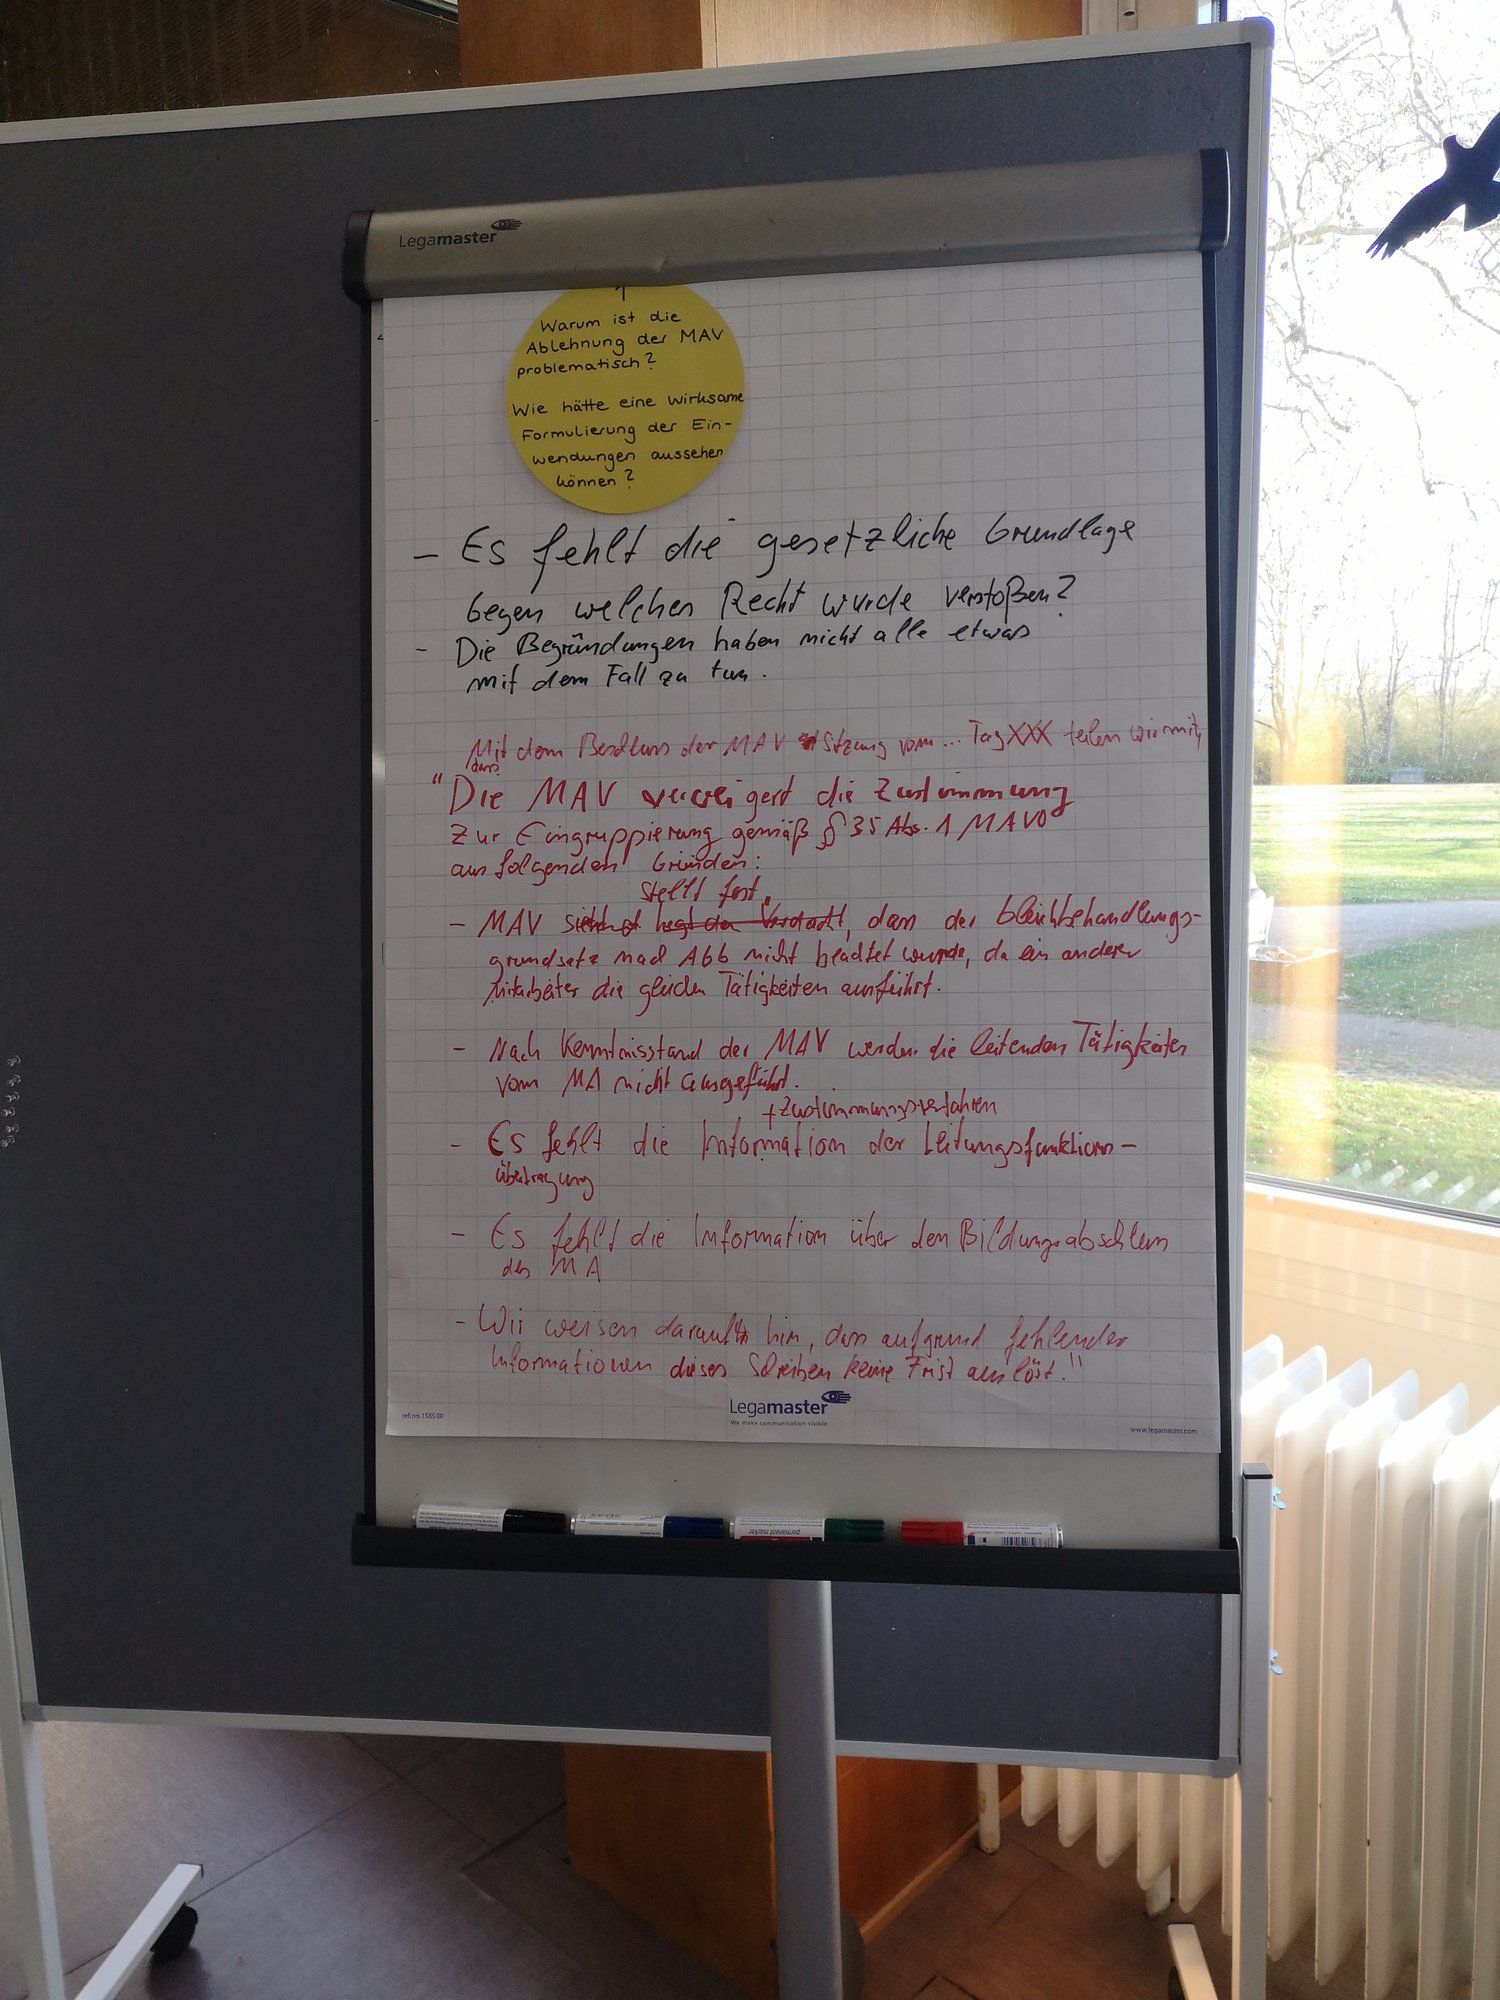 Legamaster
1
Warum ist die
Ablehnung der MAV
problematisch?
Wie hätte eine wirksame
Formulierung der Ein-
wendungen aussehen
können?
- Es fehlt die gesetzliche Grundlage
gegen welches Recht wurde verstoßen?
- Die Begründungen haben nicht alle etwas
mit dem Fall zu tun.
Mit dem Beschluss der MAV Sitzung vom... Tag XXX teilen wir mit,
dass
"Die MAV verweigert die Zustimmung
zur Eingruppierung gemäß § 35 Abs. 1 MAVO
aus folgenden Gründen:
stellt fest,
- MAV sieht hegt den Verdacht, dass der Gleichbehandlungs-
grundsatz nach Abb nicht beachtet wurde, da ein anderer
Mitarbeiter die gleichen Tätigkeiten ausführt.
- Nach Kenntnisstand der MAV werden die leitenden Tätigkeiten
vom MA nicht ausgeführt.
+ Zustimmungsverfahren
- Es fehlt die Information der Leitungsfunktions-
übertragung
- Es fehlt die Information über den Bildungsabschluss
des MA
- Wir weisen darauf hin, dass aufgrund fehlender
Informationen dieses Schreiben keine Frist auslöst!"
Legamaster
We make communication visible
ref.no. 156500
www.legamaster.com
permanent marker